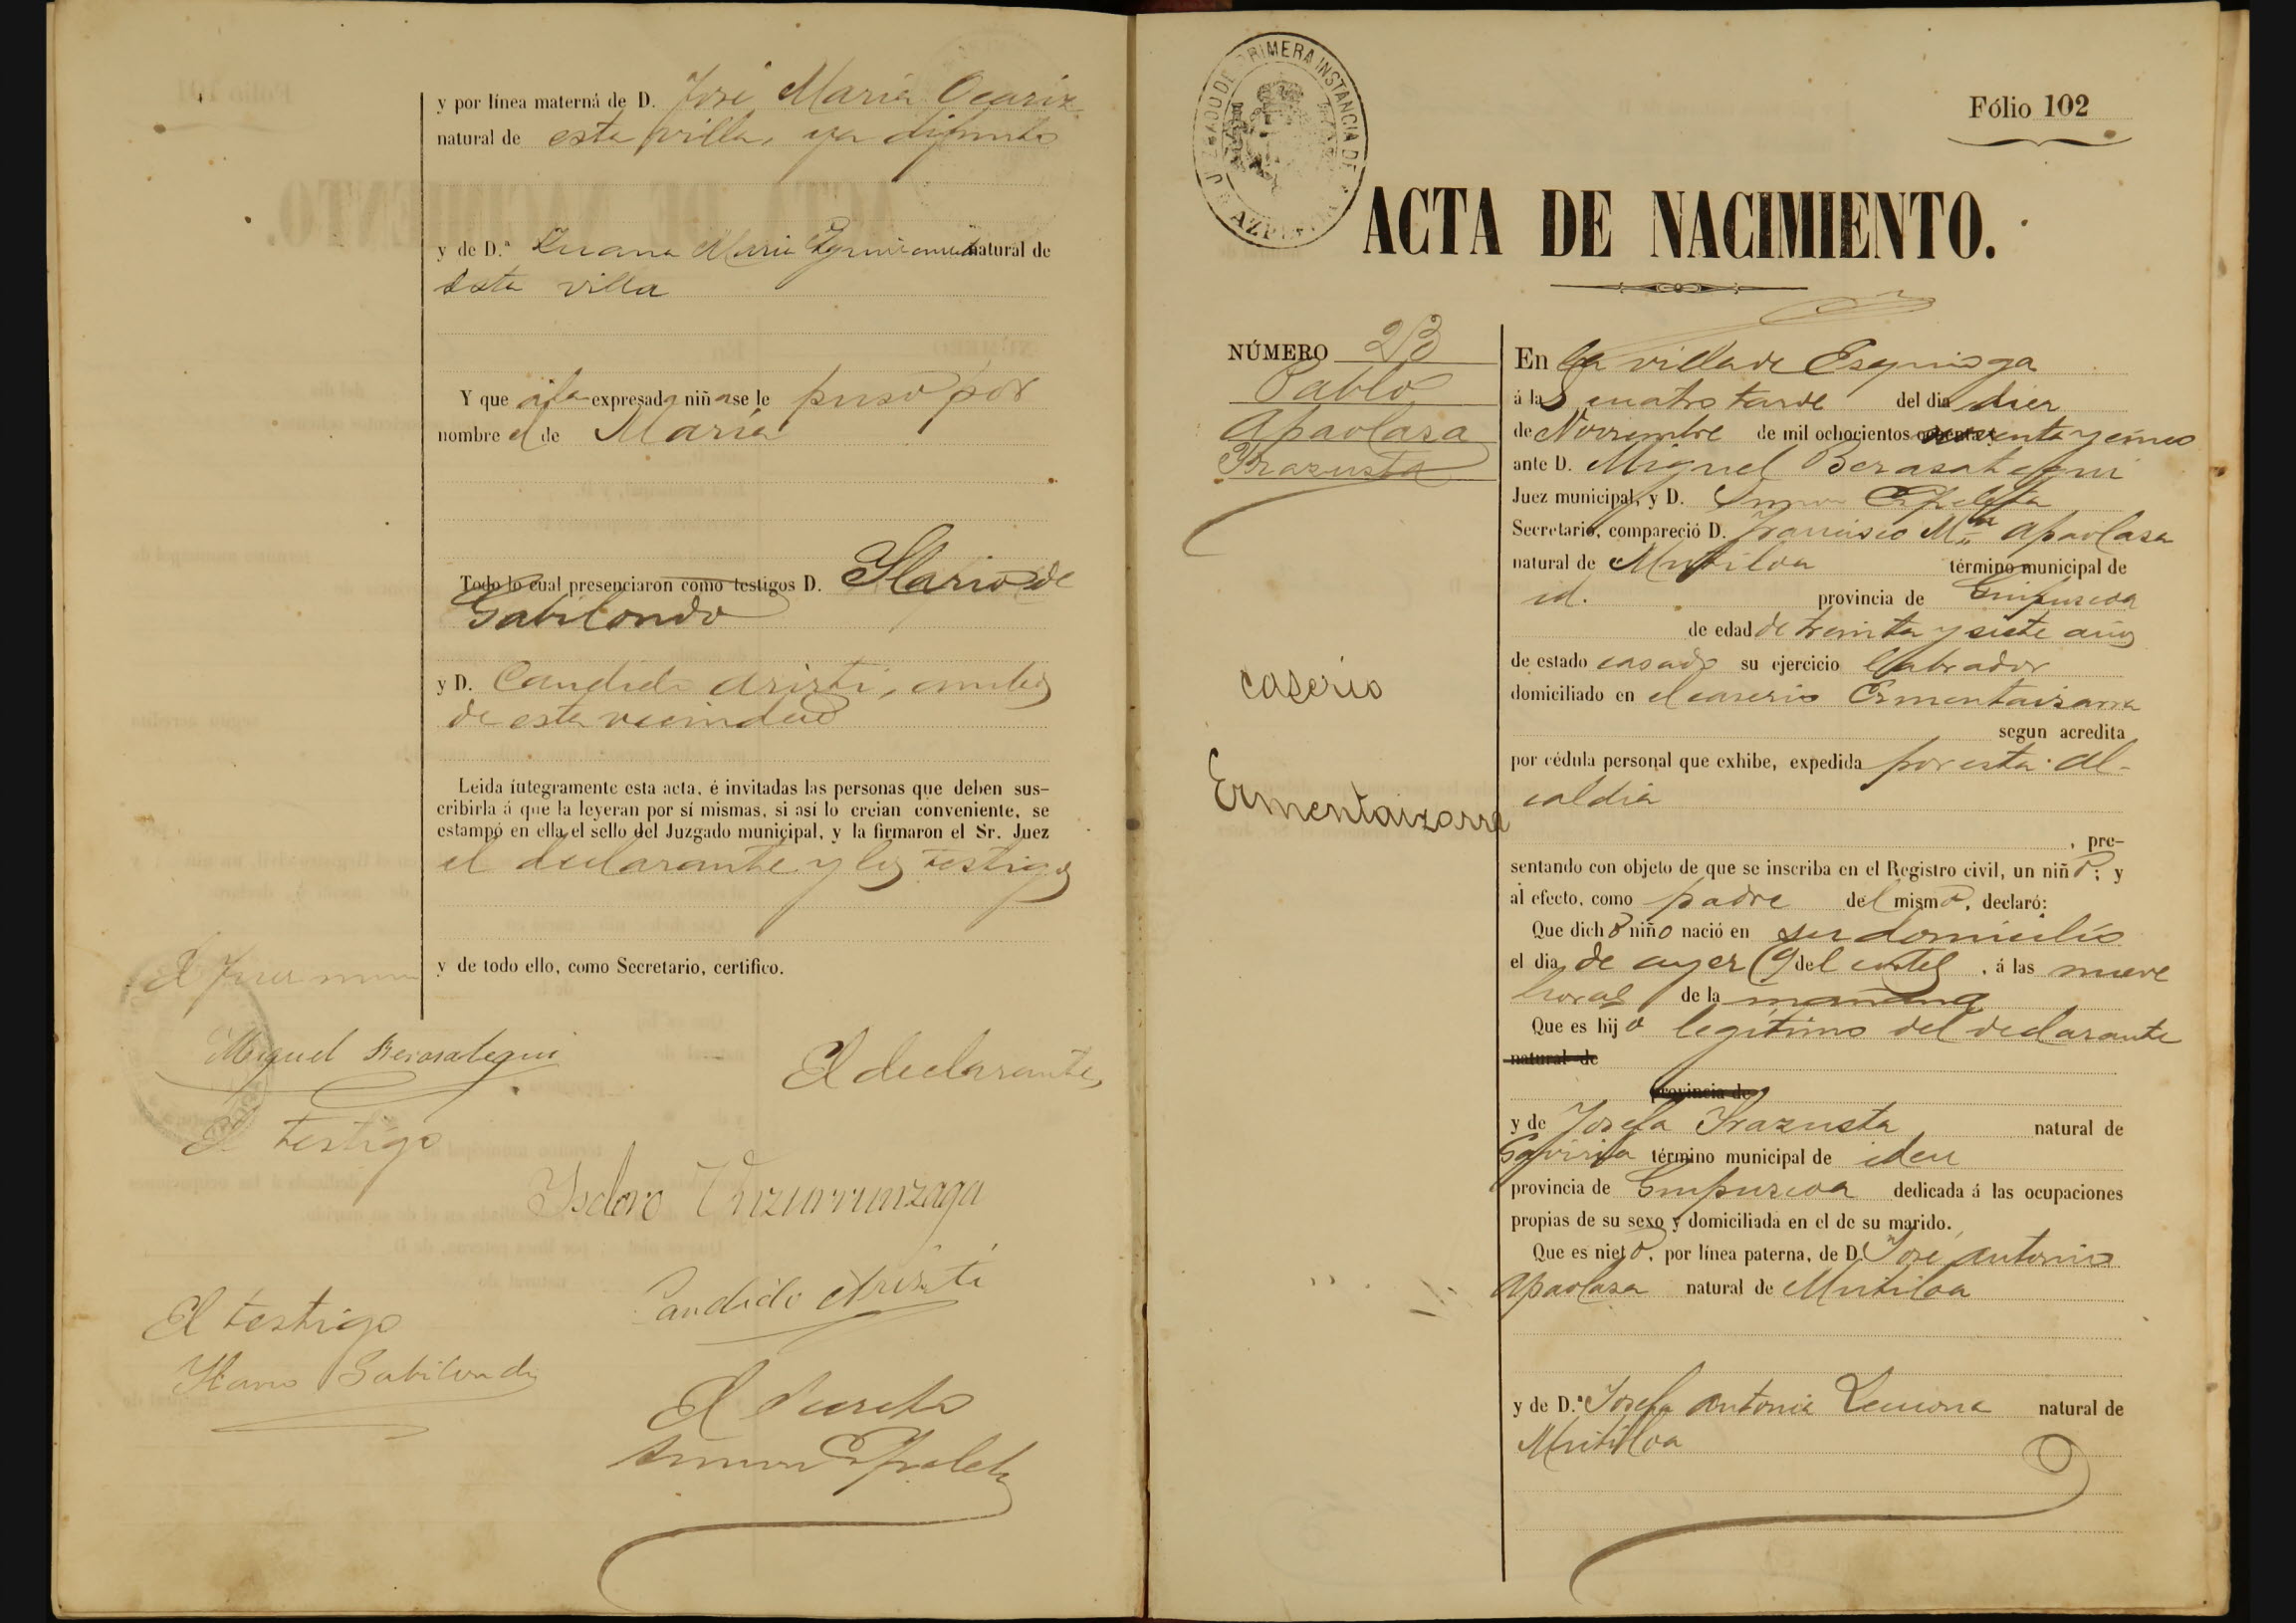 y por línea materna de D. José María Ocariz
natural de esta villa, ya difunto
y de D.ª Juana María natural de
esta villa
Y que á la expresada niña se le puso por
nombre el de María
Todo lo cual presenciaron como testigos D. Ilario de
Gabilondo
y D. Candido Aristi, ambos
de esta vecindad
Leida íntegramente esta acta, é invitadas las personas que deben sus-
cribirla á que la leyeran por sí mismas, si así lo creian conveniente, se
estampó en ella el sello del Juzgado municipal, y la firmaron el Sr. Juez
el declarante y los testigos
y de todo ello, como Secretario, certifico.
El Juez mun
Miguel Berasategui
El declarante,
El testigo
Isidoro
Candido Aristi
El testigo
Ilario Gabilondo
El Secreto
Simon Ezpeleta
JUZGADO DE PRIMERA INSTANCIA DE
AZPEITIA
Fólio 102
ACTA DE NACIMIENTO.
NÚMERO 23
Pablo
Apaolaza
Irazusta
caserio
Ermentaizarra
En la villa de Esquioga
á las cuatro tarde del dia diez
de Noviembre de mil ochocientos noventa y cinco
ante D. Miguel Berasategui
Juez municipal, y D. Simon Ezpeleta
Secretario, compareció D. Francisco M.ª Apaolaza
natural de Mutiloa término municipal de
id. provincia de Guipuzcoa
de edad de treinta y siete años
de estado casado su ejercicio labrador
domiciliado en el caserio Ermentaizarra
segun acredita
por cédula personal que exhibe, expedida por esta Al-
caldia
, pre-
sentando con objeto de que se inscriba en el Registro civil, un niño; y
al efecto, como padre del mismo, declaró:
Que dicho niño nació en su domicilio
el dia de ayer (9 del , á las nueve
horas de la mañana
Que es hijo legítimo del declarante
natural de
provincia de
y de Josefa Irazusta natural de
Gaviria término municipal de idem
provincia de Guipuzcoa dedicada á las ocupaciones
propias de su sexo y domiciliada en el de su marido.
Que es nieto, por línea paterna, de D. José Antonio
Apaolaza natural de Mutiloa
y de D.ª Josefa Antonia Lecuona natural de
Mutiloa